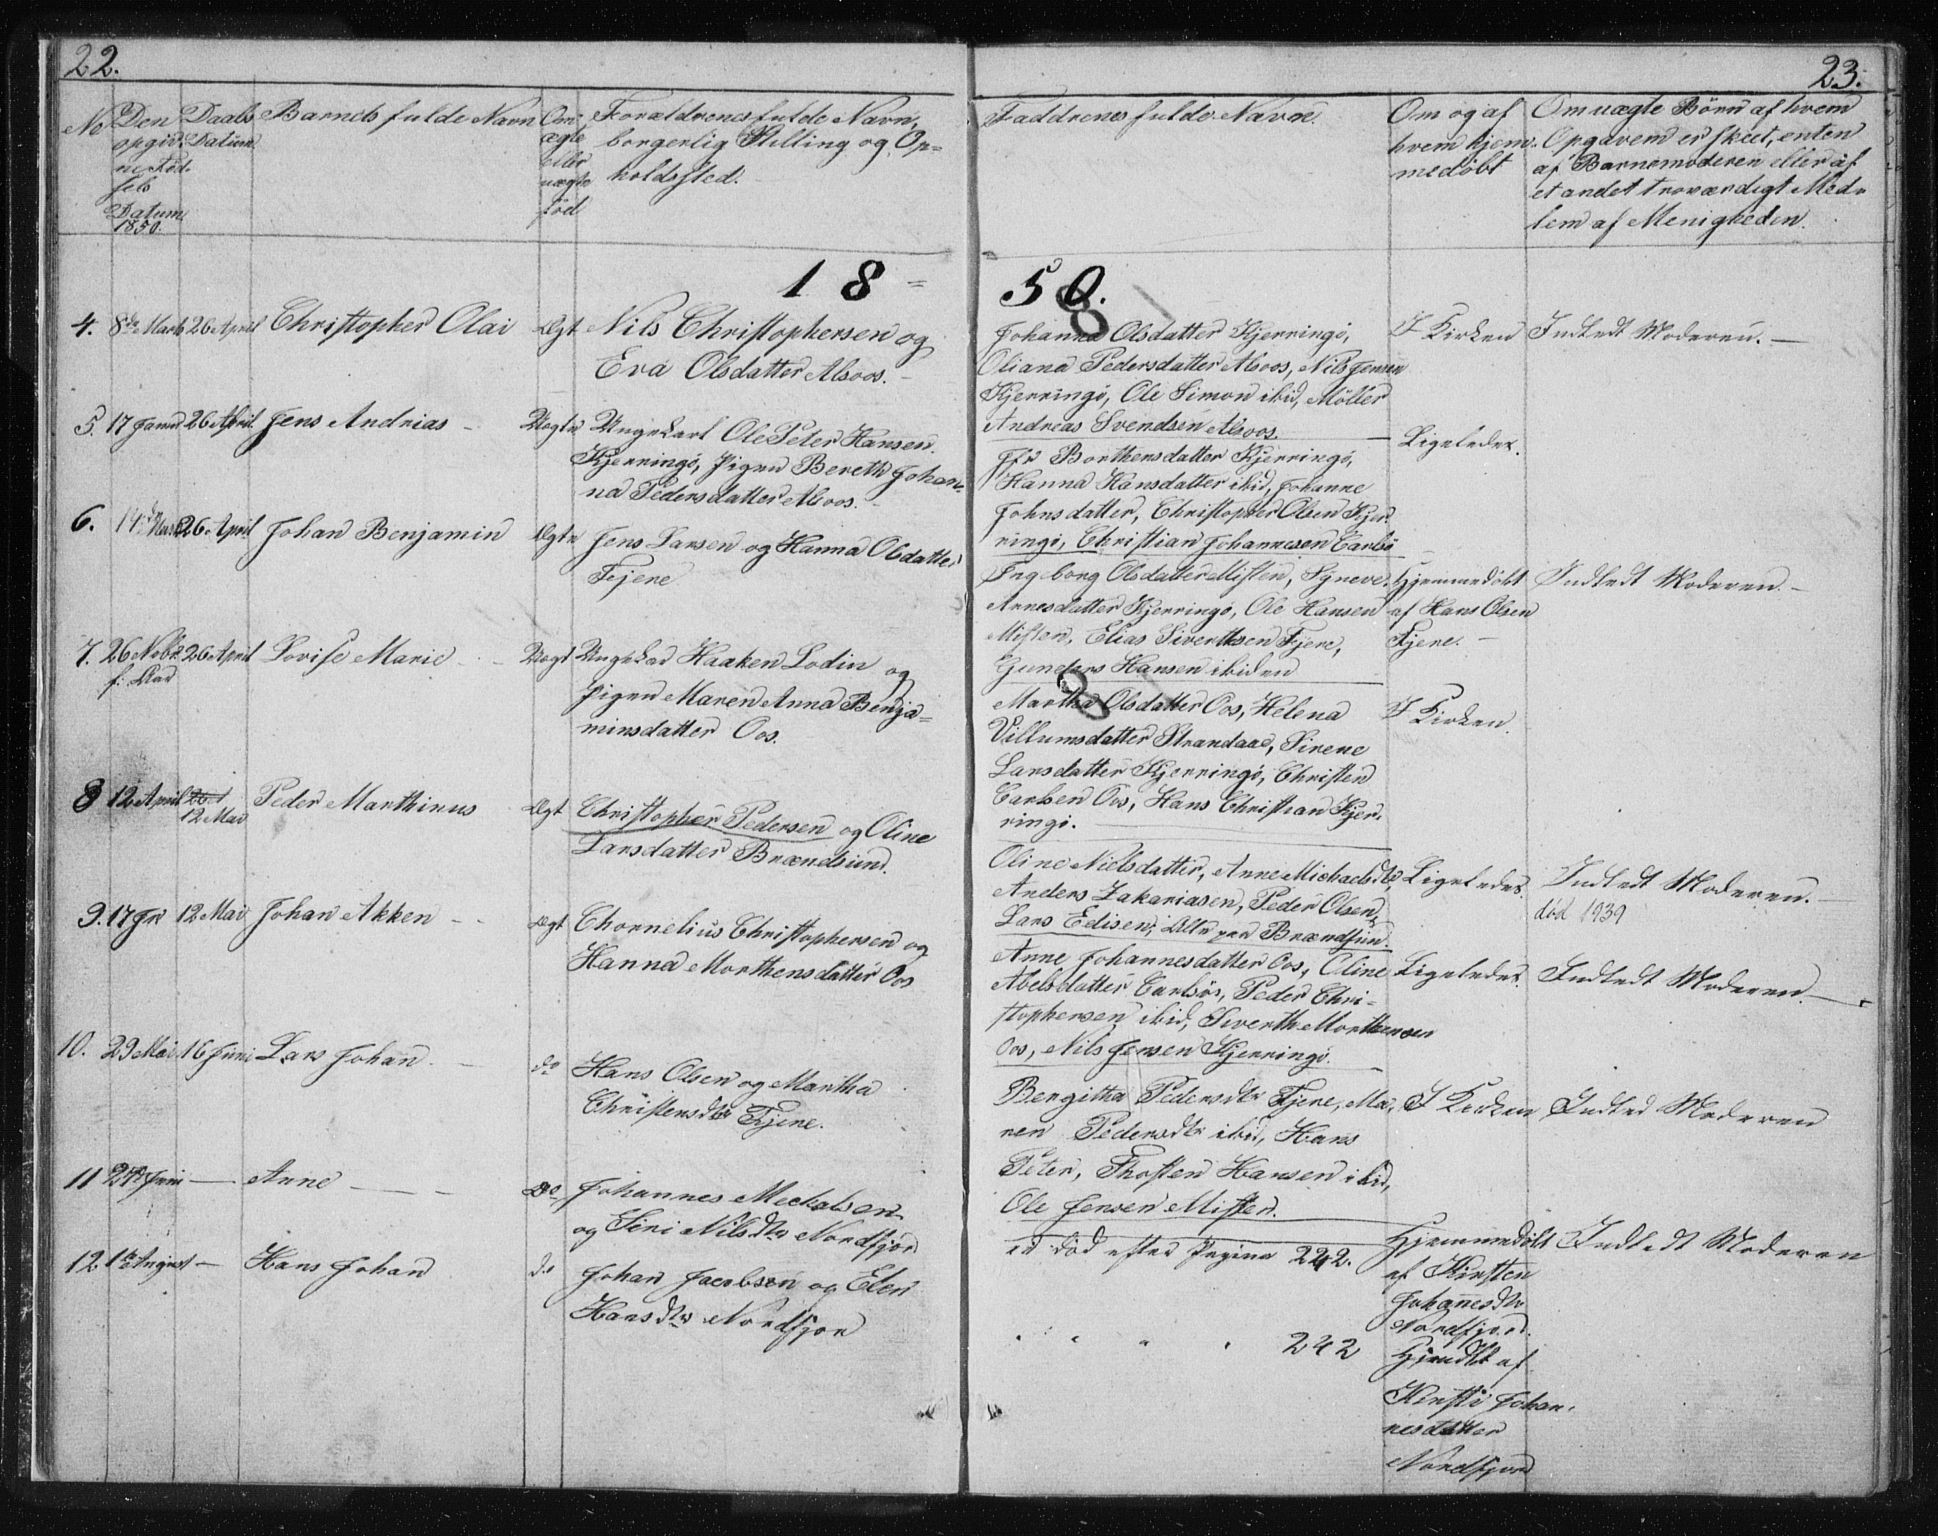 22.
No
Den opgivne Fødsels Datum 1850.
Daabs Datum
Barnets fulde Navn
Om ægte eller uægte fød
Forældrenes fulde Navn,
borgerlig Stilling og Op=
holdssted.
18=
4. 8de Marts 26 April Christopher Olai Ægt Nils Christophersen og
Eva Olsdatter Alsoos.
5. 17 Januar 26 April Jens Andrias Uegte Ungekarl Ole Peter Hansen
Kjerringö, Pigen Bereth Johan=
na Pedersdatter Alsoos.
6. 14de Marts 26 April Johan Benjamin Ægte Jens Larsen og Hanna Olsdatter
Fjere
7. 26 Nvbr. 26 April Lovise Marie Uegt Ungekar Haaken Lodin og
f: Aar
Pigen Maren Anna Benja=
minsdatter Oos.
8 12 April 12 Mai Peder Marthinus Ægt Christopher Pedersen og Oline
Larsdatter Brændsund.
9. 17 12 Mai Johan Akken Ægt Chornelius Christophersen og
Hanna Morthensdatter Oos
10. 29 Mai 16 Juni Lars Johan do Hans Olsen og Martha
Christensdtr Fjere.
11 24 Juni — Anne Do Johannes Mechalsen
og Sini Nilsdtr Nordfjor
12. 1te August — Hans Johan do Johan Jacobsen og Elen
Hansdtr Nordfjor
23.
Faddrenes fulde Navn.
Om og af
hvem hjem=
medöbt
Om uægte Børn af hvem
Opgaven er skeet, enten
af Barnemoderen eller af
et andet troværdigt Med=
lem af Menigheden.
50.
8
Johanna Olsdatter Kjerringö,
Oliana Pedersdatter Alsoos, Nils Jensen
Kjerringö, Ole Simon ibid, Möller
Andreas Svendsen Alsoos.
I Kirken
Indledt Moderen.
Borthensdatter Kjerringö,
Hanna Hansdatter ibid, Johanne
Johnsdatter, Christopher Olsen Kjer=
ringö, Christian Johannesen Carlsö
Ligeledes.
Ingeborg Olsdatter Misten, Syneve
Annesdatter Kjerringö, Ole Hansen
Misten, Elias Siverthsen Fjere,
Gunders Hansen ibiden
Hjemmedöbt
af Hans Olsen
Fjere.
Indledt Moderen.
8
Martha Olsdatter Oos, Helena
Villumsdatter Strandaae, Sirene
Larsdatter Kjerringö, Christen
Carlsen Oos, Hans Christian Kjer=
ringö.
I Kirken
Oline Nielsdatter, Anne Michaelsdtr,
Anders Zakariasen, Peder Olsen,
Lars Edisen, Alle paa Brændsun.
Ligeledes
Indledt Moderen.
død 1939
Anne Johannesdatter Oos, Oline
Abelsdatter Carlsös, Peder Chri=
stophersen ibid, Siverth Morthensen
Oos, Nils Jensen Kjerringö.
Ligeledes
Indledt Moderen.
Bergitha Pedersdtr Fjere, Ma=
ren Pedersdtr ibid, Hans
Peter, Thosten Hansen ibid,
Ole Jensen Misten.
I Kirken
Indled Moderen
er död efter Pagina 242.
Hjemmedöbt
af Kirsten
Johannesdtr
Nordfjord.
Indledt Moderen
" " " " 242
Hjemdöbt af
Kirsti Johan=
nesdatter
Nordfjord